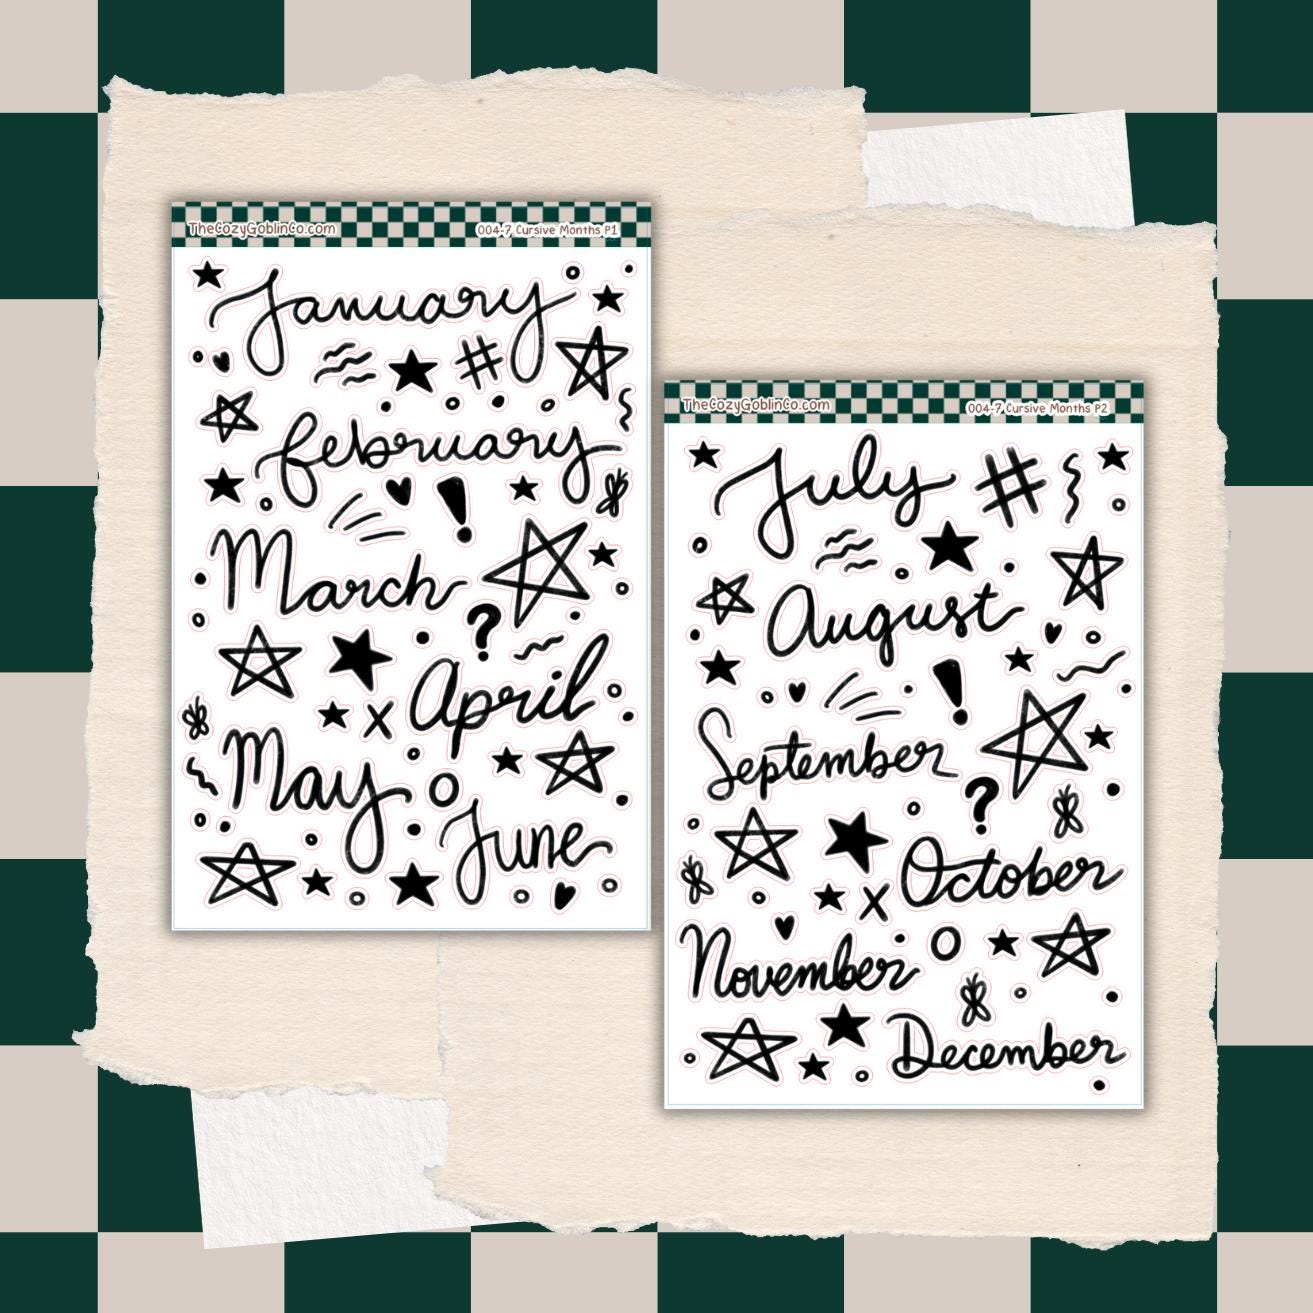 TheCozyGoblinCo.com 004-7 Cursive Months P1
January
#
february
!
March
?
April
X
May
O
June
TheCozyGoblinCo.com 004-7 Cursive Months P2
July #
August
!
September
?
October
X
November O
December